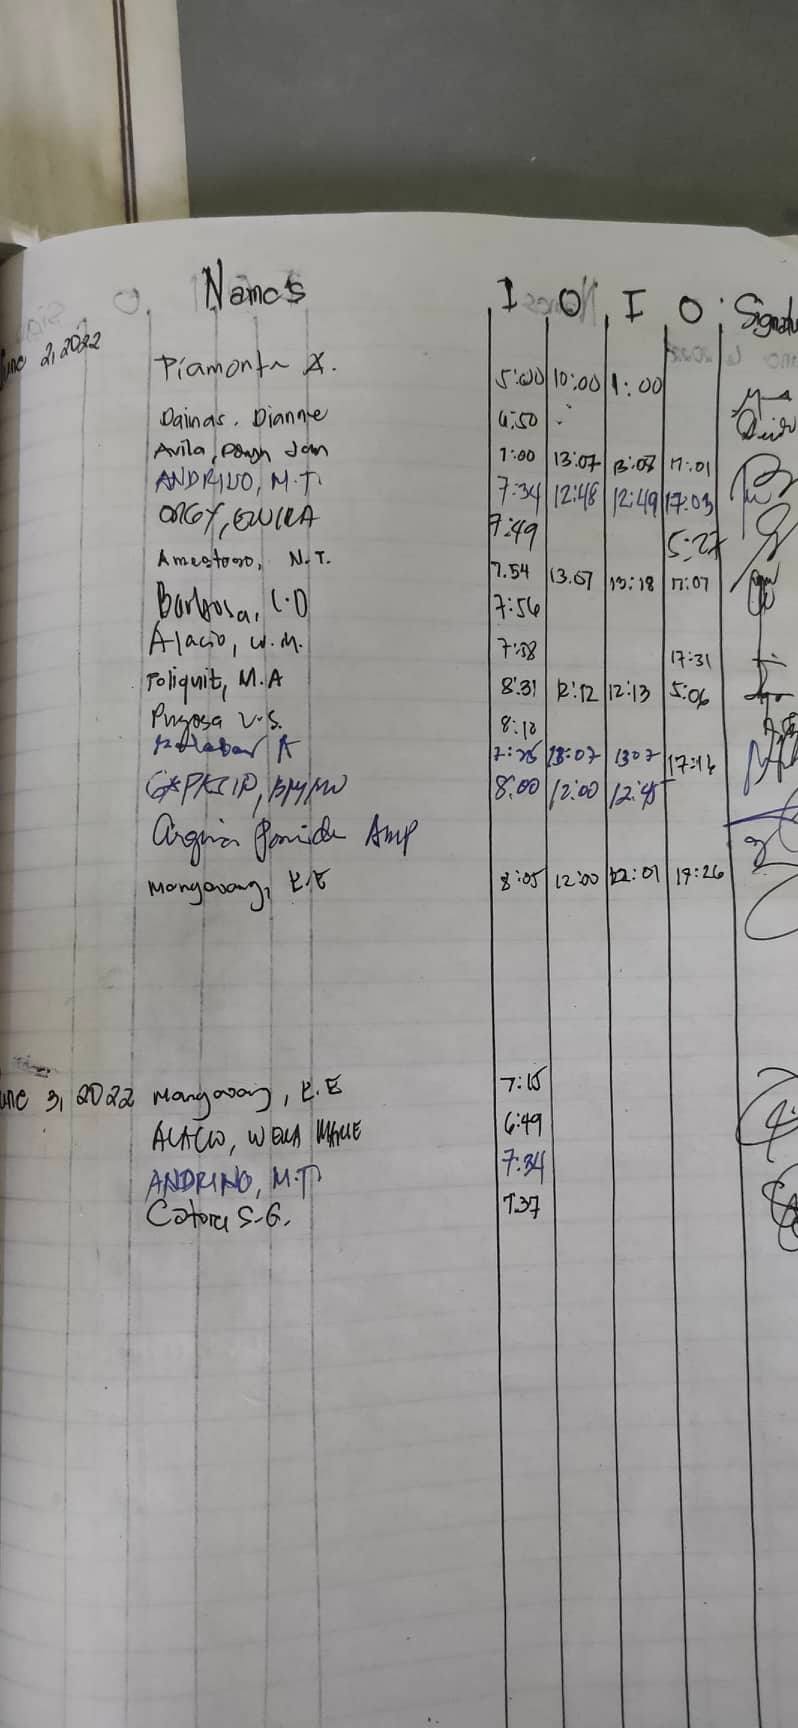 Names I O I O Signatu
June 2, 2022
Piamonte X. 5:00 10:00 1:00
Dainas. Dianne 6:50
Avila, Jan 7:00 13:07 13:08 17:01
ANDRINO, M.T. 7:34 12:48 12:49 17:03
ORGY, ELVIRA 7:49 5:27
Amestoso, N.T. 7.54 13.07 13:18 17:07
Barbosa, C.D 7:56
Alacio, W.M. 7:58 17:31
Poliquit, M.A 8:31 12:12 12:13 5:06
Pugosa V.S. 8:10
A 13:07 1307 17:16
8:00 12:00 12:45
Amp
Mangavang, K.E 8:05 12:00 12:01 17:26
June 3, 2022 Mangavang, K.E 7:15
ALACIO, WENA MARIE 6:49
ANDRINO, M.T. 7:34
Catora S.G. 7:37